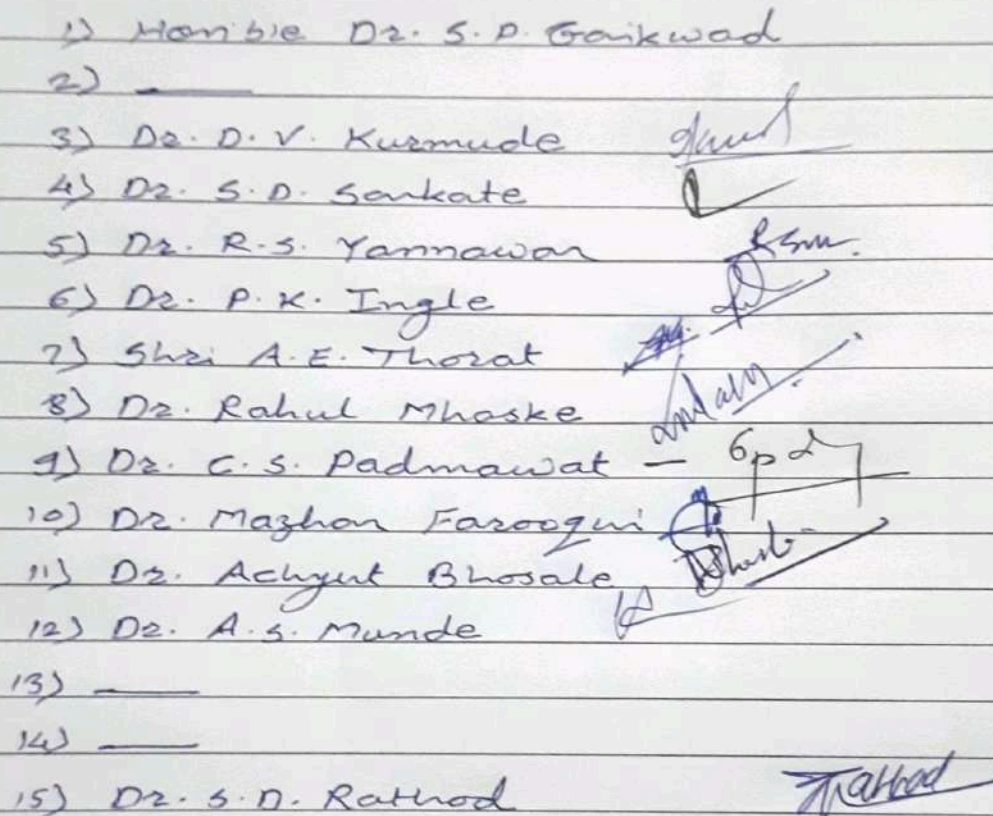 1) Hon'ble Dr. S. P. Gaikwad
2) ——
3) Dr. D. V. Kurmude
4) Dr. S. D. Sankate
5) Dr. R. S. Yannawar
6) Dr. P. K. Ingle
7) Shri A. E. Thorat
8) Dr. Rahul Mhaske
9) Dr. C. S. Padmawat —
10) Dr. Mazhar Farooqui
11) Dr. Achyut Bhosale
12) Dr. A. S. Munde
13) ——
14) ——
15) Dr. S. D. Rathod Rathod